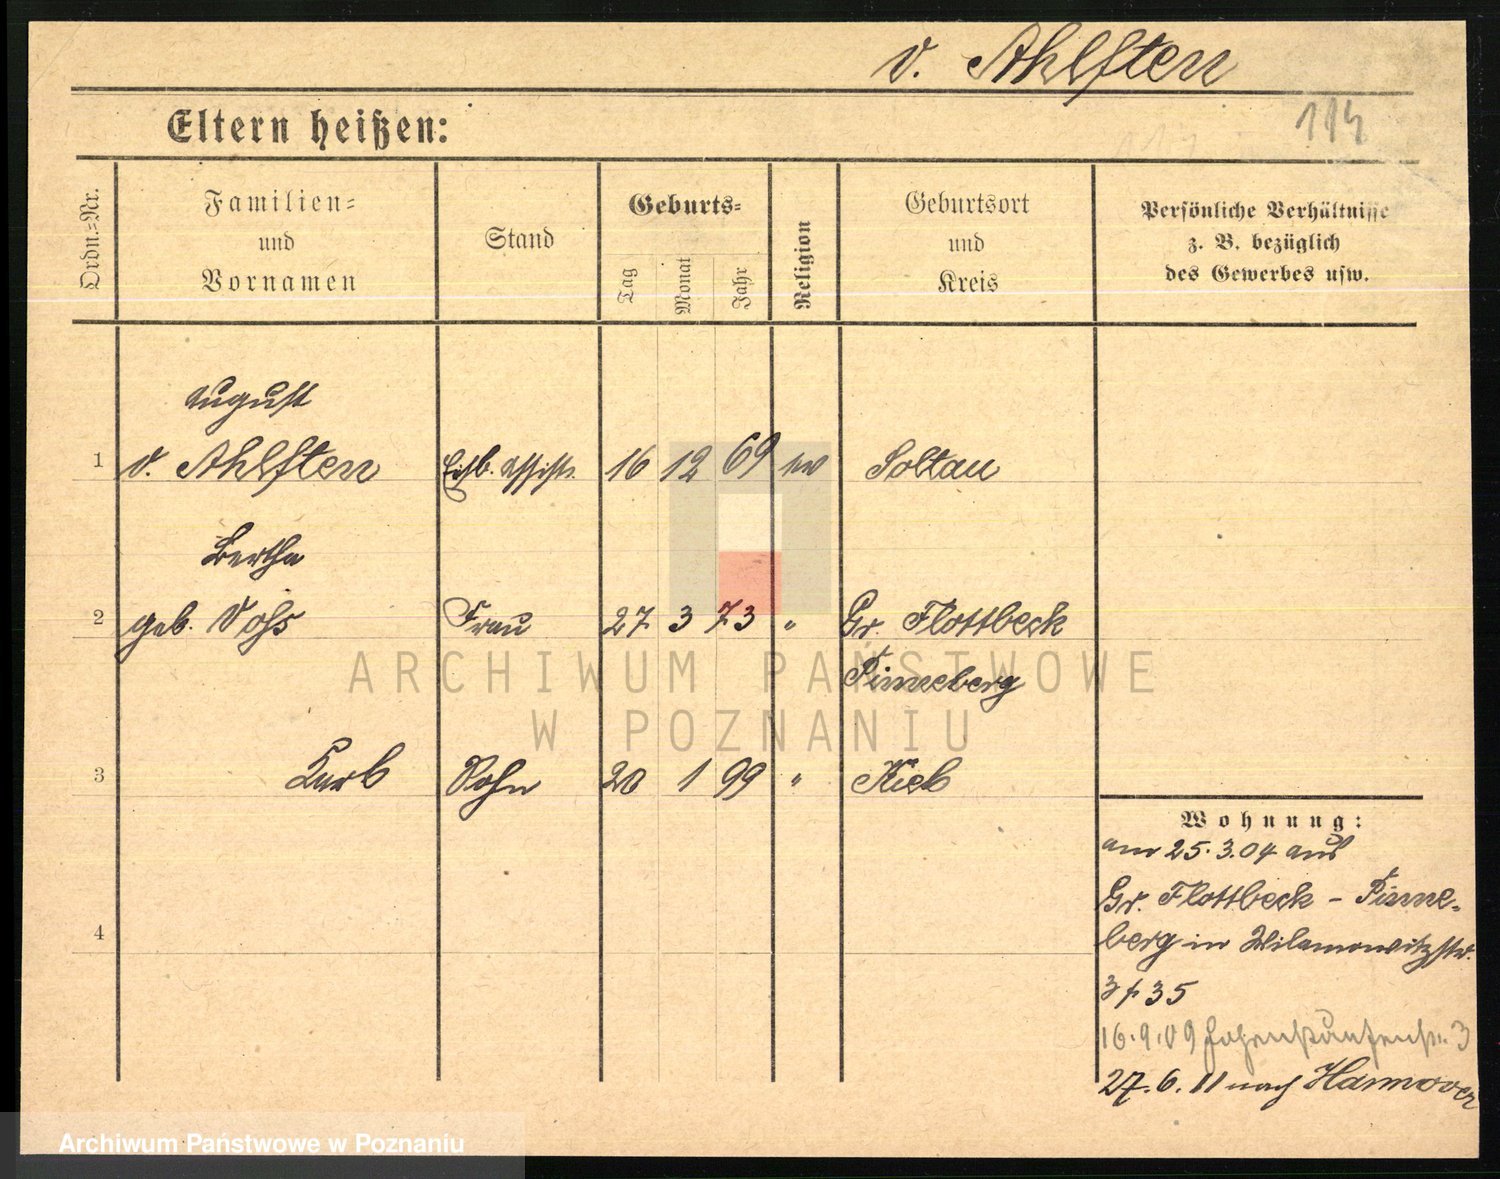 v. Ahlften
114
Eltern heißen:
Ordn.=Nr.
Familien=
und
Vornamen
Stand
Geburts=
Tag
Monat
Jahr
Religion
Geburtsort
und
Kreis
Persönliche Verhältnisse
z. B. bezüglich
des Gewerbes usw.
August
1 v. Ahlften Eisb. Assist. 16 12 69 ev Soltau
Bertha
2 geb. Voß Frau 27 3 73 " Gr. Flottbeck
Pinneberg
3 Karl Sohn 20 1 99 " Kiel
4
Wohnung:
am 25.3.04 aus
Gr. Flottbeck - Pinne-
berg in Wilamowitzstr.
35
16.9.09 3
27.6.11 nach Hannover
ARCHIWUM PAŃSTWOWE
W POZNANIU
Archiwum Państwowe w Poznaniu